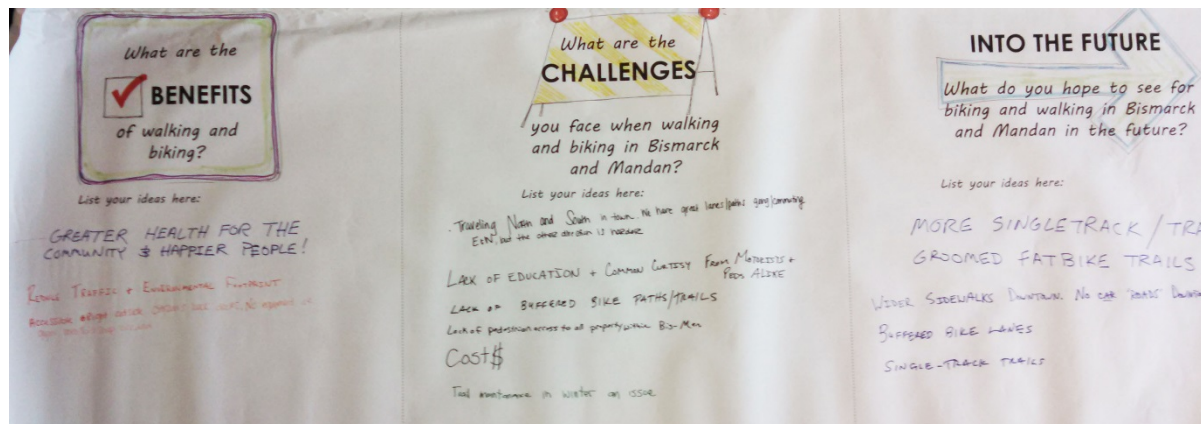 What are the
BENEFITS
of walking and
biking?
List your ideas here:
GREATER HEALTH FOR THE
COMMUNITY & HAPPIER PEOPLE!
REDUCE TRAFFIC + ENVIRONMENTAL FOOTPRINT
What are the
CHALLENGES
you face when walking
and biking in Bismarck
and Mandan?
List your ideas here:
. Traveling North and South in town. We have great lanes/paths going/commuting
E&W, but the other direction is harder
LACK OF EDUCATION + COMMON CURTISY FROM MOTORISTS +
PEDS ALIKE
LACK OF BUFFERED BIKE PATHS/TRAILS
Lack of pedestrian access to all property within Bis-Man
Cost$
Trail maintenance in winter an issue
INTO THE FUTURE
What do you hope to see for
biking and walking in Bismarck
and Mandan in the future?
List your ideas here:
MORE SINGLETRACK/TRA
GROOMED FATBIKE TRAILS
WIDER SIDEWALKS DOWNTOWN. NO CAR ROADS
BUFFERED BIKE LANES
SINGLE-TRACK TRAILS